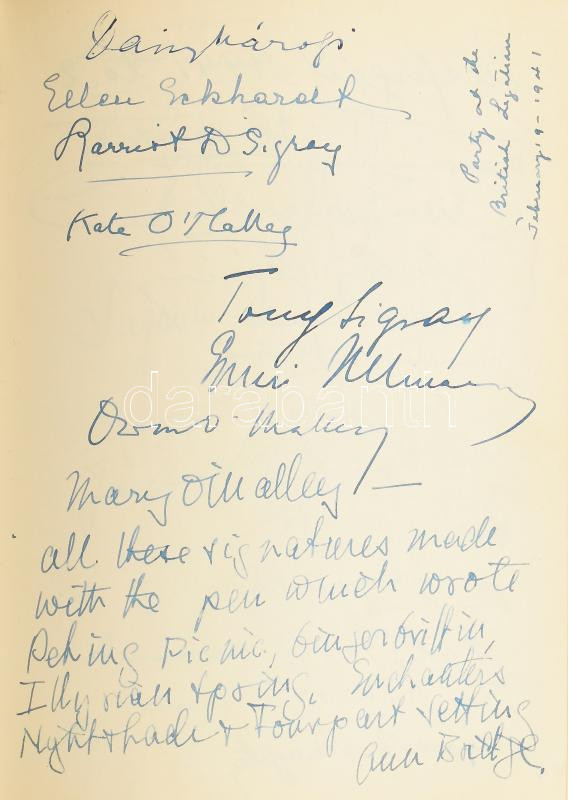 Ellen Eckhardt
Harriot D Sigray
Kate O'Malley
Tony Sigray
Emmi Ullmann
Owen O'Malley
Mary O'Malley —
all these signatures made
with the pen which wrote
Peking Picnic, Gingergriffin,
Illyrian Spring, Enchanter's
Nightshade & Fourpart Setting
Ann Bridge.
Party at the
British Legation
February 19 - 1941
darabanth